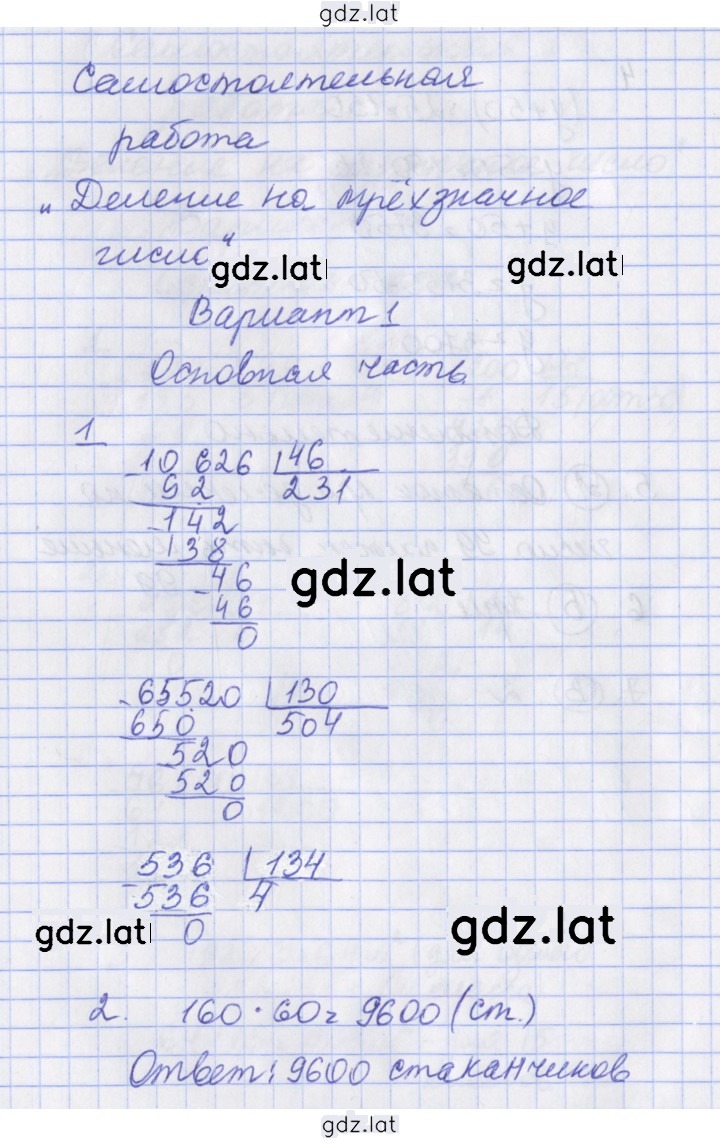 gdz.lat
Самостоятельная
работа
„Деление на трёхзначное
число“
gdz.lat gdz.lat
Вариант 1
Основная часть
1
10 626 46
92 231
142
138
46
46
0
gdz.lat
65520 130
650 504
520
520
0
536 134
536 4
0
gdz.lat gdz.lat
2. 160 · 60 = 9600 (ст.)
Ответ: 9600 стаканчиков
gdz.lat